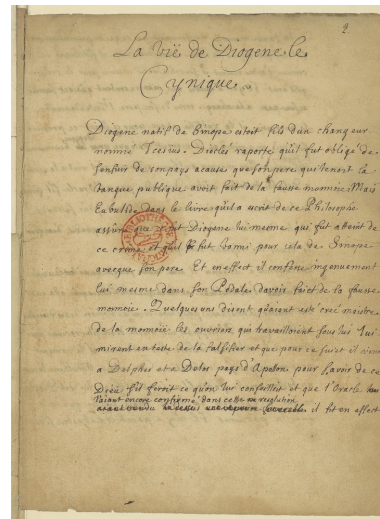 2
La vië de Diogene le
Cynique.
Diogene natif de Sinope estoit fils d'un changeur
nommé Icesius. Dioclés raporte qu'il fut obligé de
s'enfuir de son pays a cause que son pere qui tenoit la
banque publique avoit fait de la fausse monnoie. Mais
Eubulide dans le livre qu'il a ecrit de ce Philosophe
assure que c'étoit Diogene lui mesme qui fut atteint de
ce crime et qu'il fut banni pour cela de Sinope
avecque son pere. Et en effect il confesse ingenuement
lui mesme dans son Podale d'avoir faict de la fausse
monnoie. Quelques uns disent qu'aiant esté creé maistre
de la monnoië les ouvriers qui travailloient sous lui lui
mirent en teste de la falsifier et que pour ce suiet il vint
a Delphes et a Delos pays d'Apollon pour sçavoir de ce
Dieu s'il feroit ce qu'on lui conseilloit et que l'Oracle
l'aiant encore confirmé dans cette resolution
il fit en effect